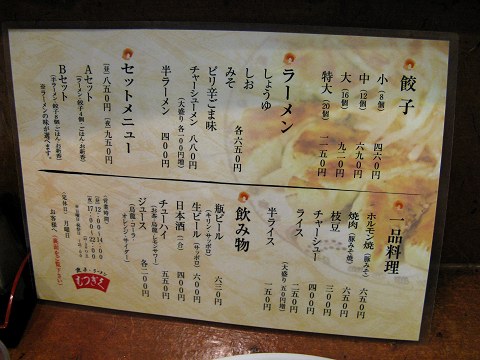 餃子
小(8個) 四六〇円
中(12個) 六九〇円
大(16個) 九二〇円
特大(20個) 一一五〇円
ラーメン
しょうゆ
しお
みそ
各六五〇円
ピリ辛ごま味
チャーシューメン 八八〇円
(大盛り各一〇〇円増)
半ラーメン 四〇〇円
セットメニュー
(昼)八五〇円 (夜)九五〇円
Aセット
(ラーメン・餃子4個・ごはん・お新香)
Bセット
(半ラーメン・餃子8個・ごはん・お新香)
※ラーメンの味が選べます。
一品料理
ホルモン焼(豚みそ) 六五〇円
焼肉(豚みそ焼) 六五〇円
枝豆 三〇〇円
チャーシュー 四〇〇円
ライス 二五〇円
(大盛り五〇円増)
半ライス 一五〇円
飲み物
瓶ビール 六三〇円
(キリン・サッポロ)
生ビール(サッポロ) 六〇〇円
日本酒(一合) 四〇〇円
チューハイ 五五〇円
ジュース 各二〇〇円
(烏龍・コーラ
オレンジ・サイダー)
(営業時間)
(昼)12:00〜14:00
(夜)17:00〜22:00
(定休日) 月曜日
お客様へ
餃子・ラーメン